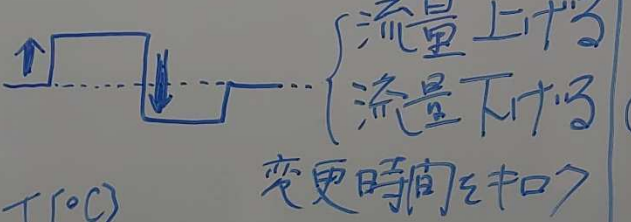 流量上げる
流量下げる
変更時間をキロク
T(°C)